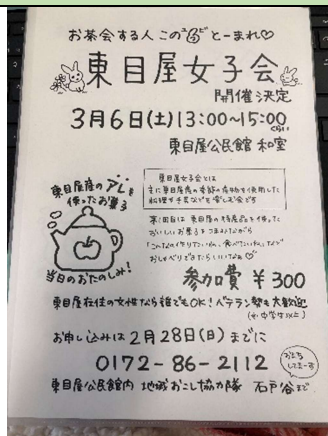 お茶会する人この指とーまれ♡
東目屋女子会
開催決定
3月6日(土)13:00〜15:00
くらい
東目屋公民館 和室
東目屋産のアレを
使ったお菓子
当日のおたのしみ!
東目屋女子会とは
主に東目屋産の季節の産物を使用した
料理や手芸などを楽しむ会です
第1回目は 東目屋の特産品を使った
おいしいお菓子をつまみながら
「こんなの作りたいね、食べたいね」など
おしゃべりできたらいいなぁ♡
参加費 ¥300
東目屋在住の女性なら誰でもOK! ベテラン勢も大歓迎
(※中学生以上)
お申し込みは2月28日(日)までに
0172-86-2112
おまちしてまーす
東目屋公民館内 地域おこし協力隊 石戸谷まで